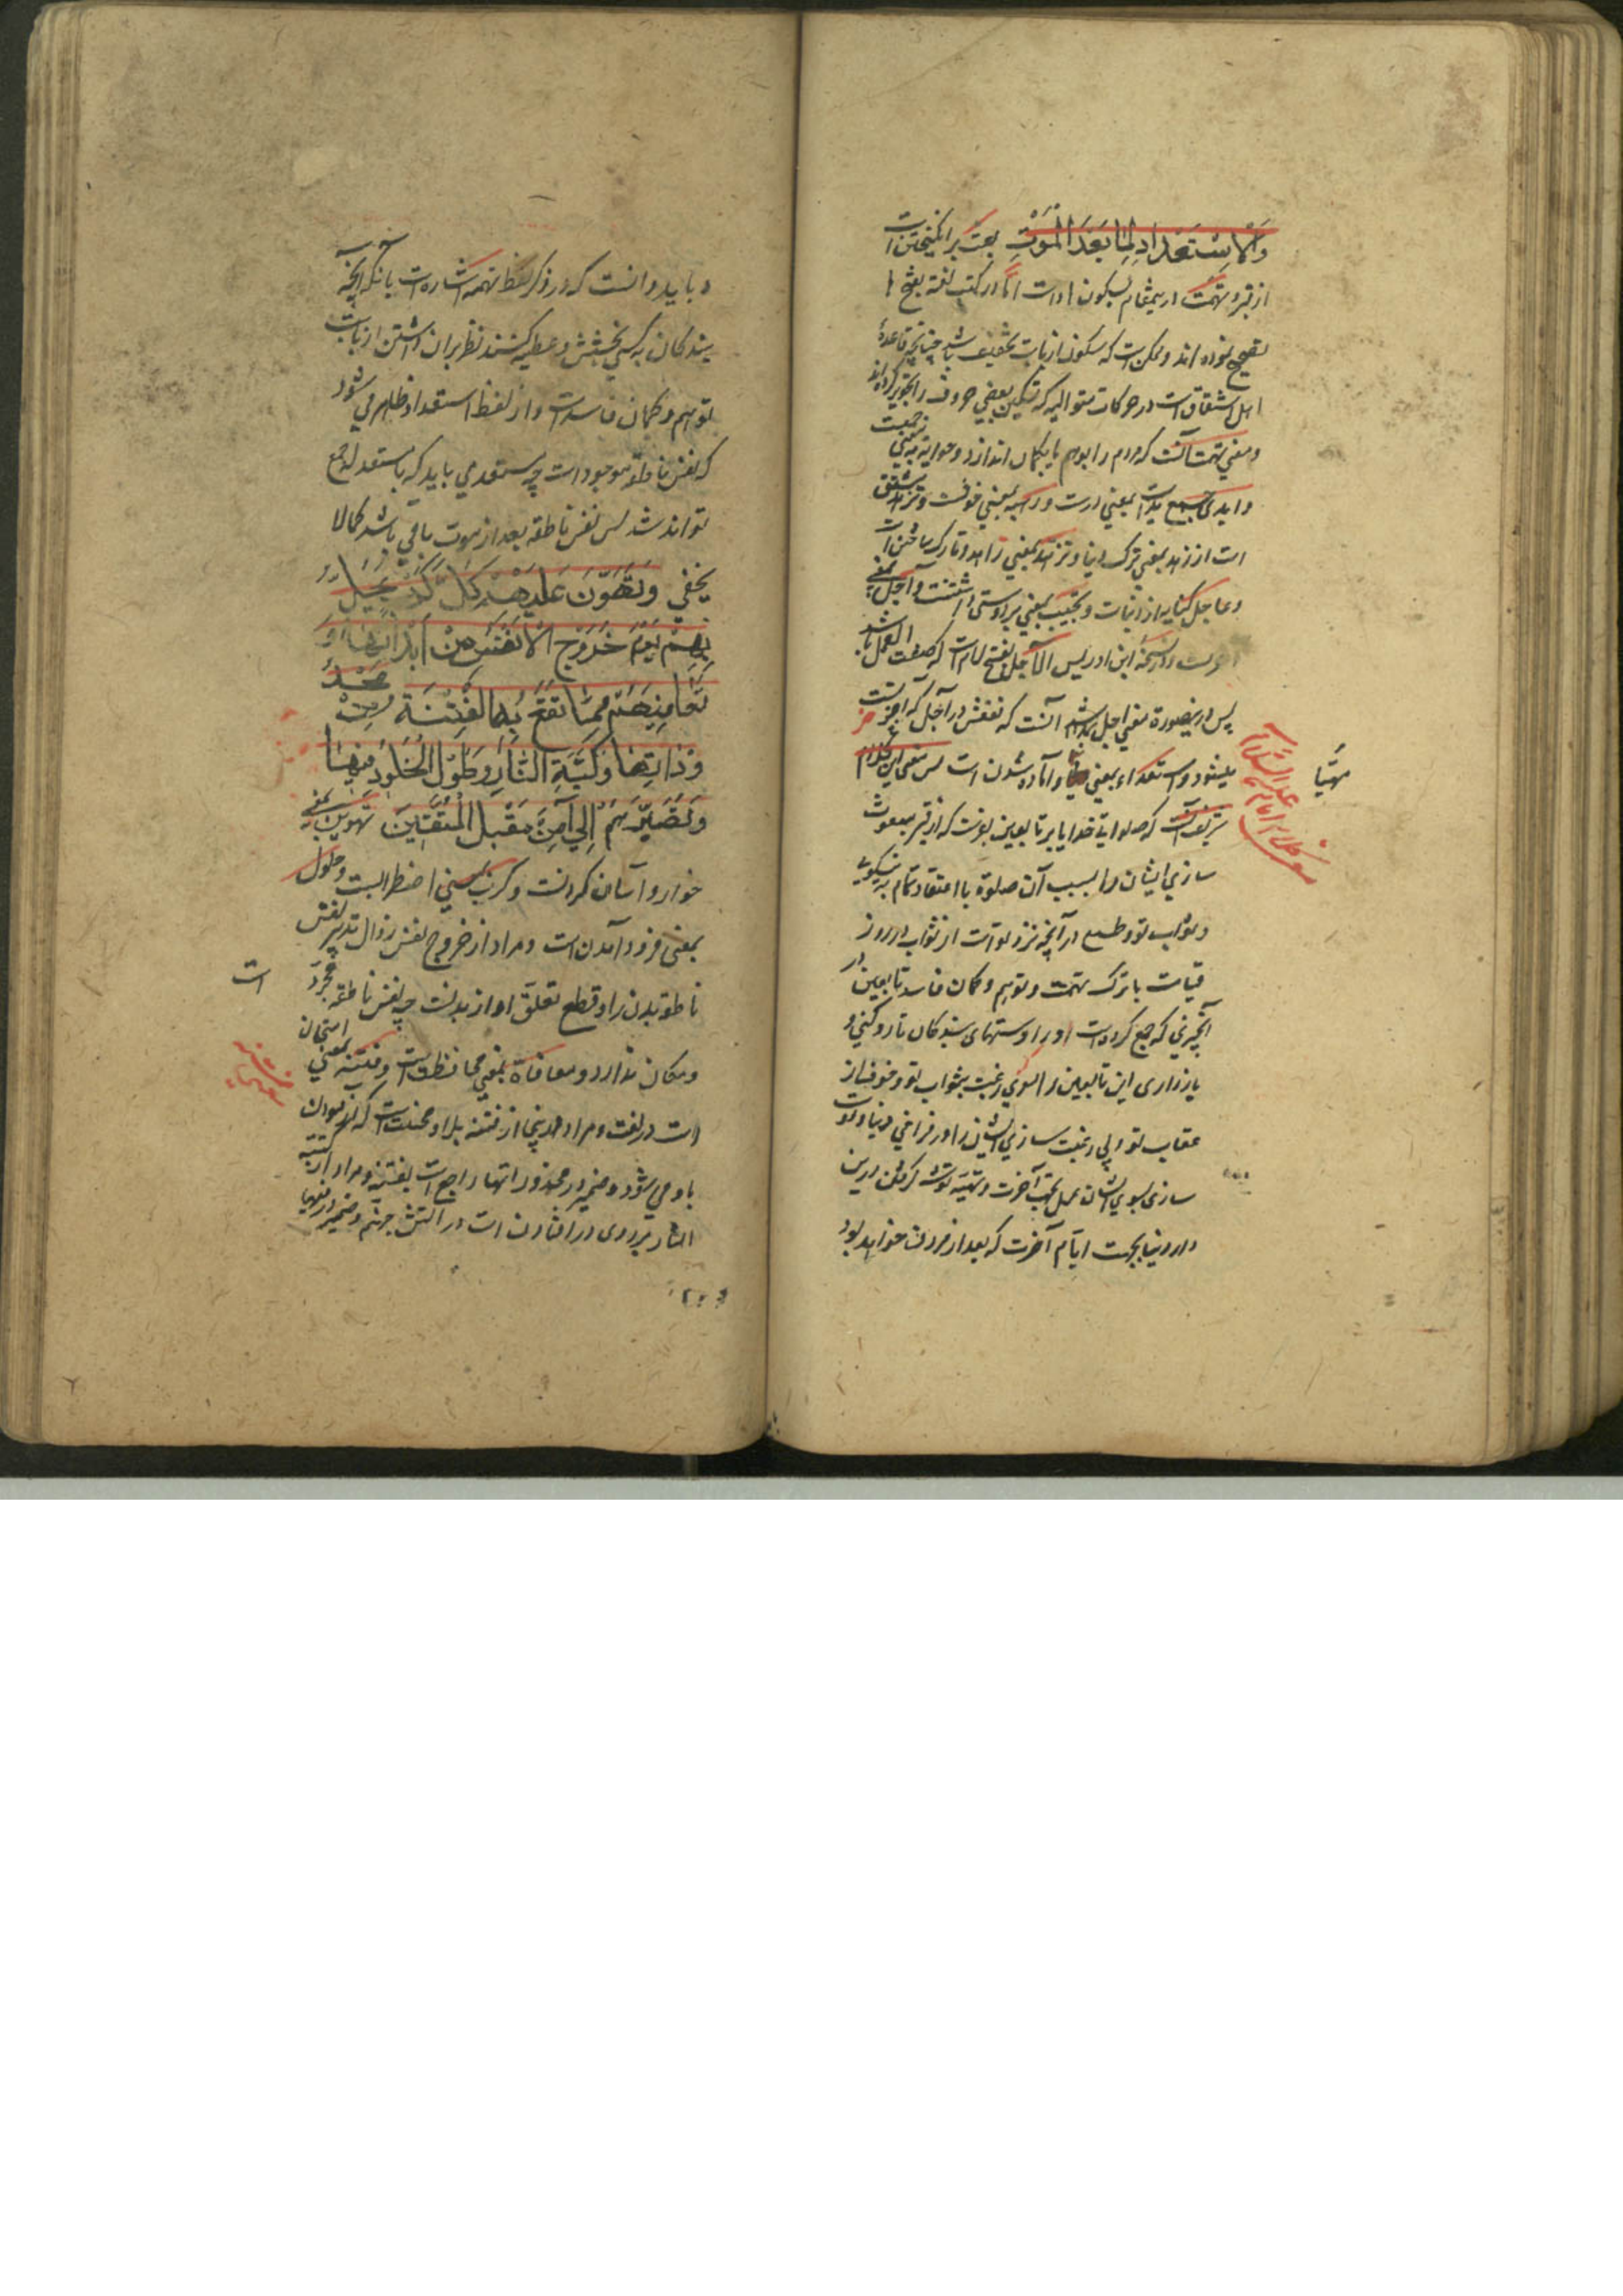 وَالْاِسْتِعْدَادِ لِمَا بَعْدَ الْمَوْتِ بعث برانگیختن است
از قبر و تهمت در ینمقام بسکون ها است اما در کتب لغة بفتح ها
تصحیح نموده اند و ممکن است که سکون از باب تخفیف باشد چنانچه قاعدهٔ
اهل اشتقاق است در حرکات متوالیه که تسکین بعضی حروف را تجویز کرده اند
و معنی تهمت آنست که مردم را بوهم یا بگمان اندازد
و ایدی جمع ید است بمعنی دست
است از زهد بمعنی ترک دنیا و تزهد بمعنی زاهد و تارک ساختن است
و عاجل کنایه از دنیاست و تحبیب بمعنی بر دوستی داشتنست و آجل بمعنی
و در نسخه ابن ادریس الآجل بفتح لام است که صفت العمل باشد
پس در ینصورة معنی اجل باشد آنست که نفعش در آجل که آخرتست
میشود و استعداد بمعنی و آماده شدن است پس معنی این کلام
مهیّا
شریف آنست که صلواتی خدایا بر تابعین بفرست که از قبر مبعوث
سازی ایشان را بسبب آن صلوة با اعتقاد تمام به نیکویی
و ثواب تو و طمع در آنچه نزد تو است از ثواب در روز
قیامت با ترک تهمت و توهم و گمان فاسد تابعین در
آنچیزی که جمع کرده است او را دستهای بندگان تا رو کنی و
بازداری این تابعین را بسوی رغبت بثواب تو و خوف از
عقاب تو و بی رغبت سازی ایشان را در فراخی دنیا و دوست
سازی بسوی ایشان عمل بجهت آخرت و تهیّه توشه گرفتن درین
دار دنیا بجهت ایّام آخرت که بعد از مردن خواهد بود
و باید دانست که در ذکر لفظ تهمه اشاره است بآنکه آنچه
بندگان به کسی بخشش و عطیه کنند نظر بران داشتن از باب
توهم و گمان فاسد است و از لفظ استعداد ظاهر می شود
که نفس ناطقه موجود است چه مستعد می باید که با مستعد له جمع
تواند شد پس نفس ناطقه بعد از موت باقی باشد کما لا
یخفی وَتُهَوِّنَ عَلَيْهِمْ كُلَّ كَرْبٍ يَحِلُّ
بِهِمْ يَوْمَ خُرُوجِ الْاَنْفُسِ مِنْ اَبْدَانِهَا وَ
تُعَافِيَهُمْ مِمَّا تَقَعُ بِهِ الْفِتْنَةُ مِنْ مَحْذُ
وْرَاتِهَا وَكَبَّةِ النَّارِ وَطُوْلِ الْخُلُودِ فِيْهَا
وَتُصَيِّرَهُمْ اِلٰي اَمْنٍ مِنْ مَقِيْلِ الْمُتَّقِيْنَ تهوین بمعنی
خوار و آسان کردنست و کرب بمعنی اضطرابست و حلول
بمعنی فرود آمدن است و مراد از خروج نفس زوال تدبیر نفس
ناطقه بدن را و قطع تعلّق او از بدنست چه نفس ناطقه مجرّد
است
و مکان ندارد و معافاة بمعنی محافظت است و فتنه بمعنی امتحان
است در لغت و مراد در ینجا از فتنه بلا و محنت است که
باو می شود و ضمیر در محذوراتها راجع است بفتنه و مراد از کبّة
النار بر روی در افتادن است در آتش جهنم و ضمیر در فیها